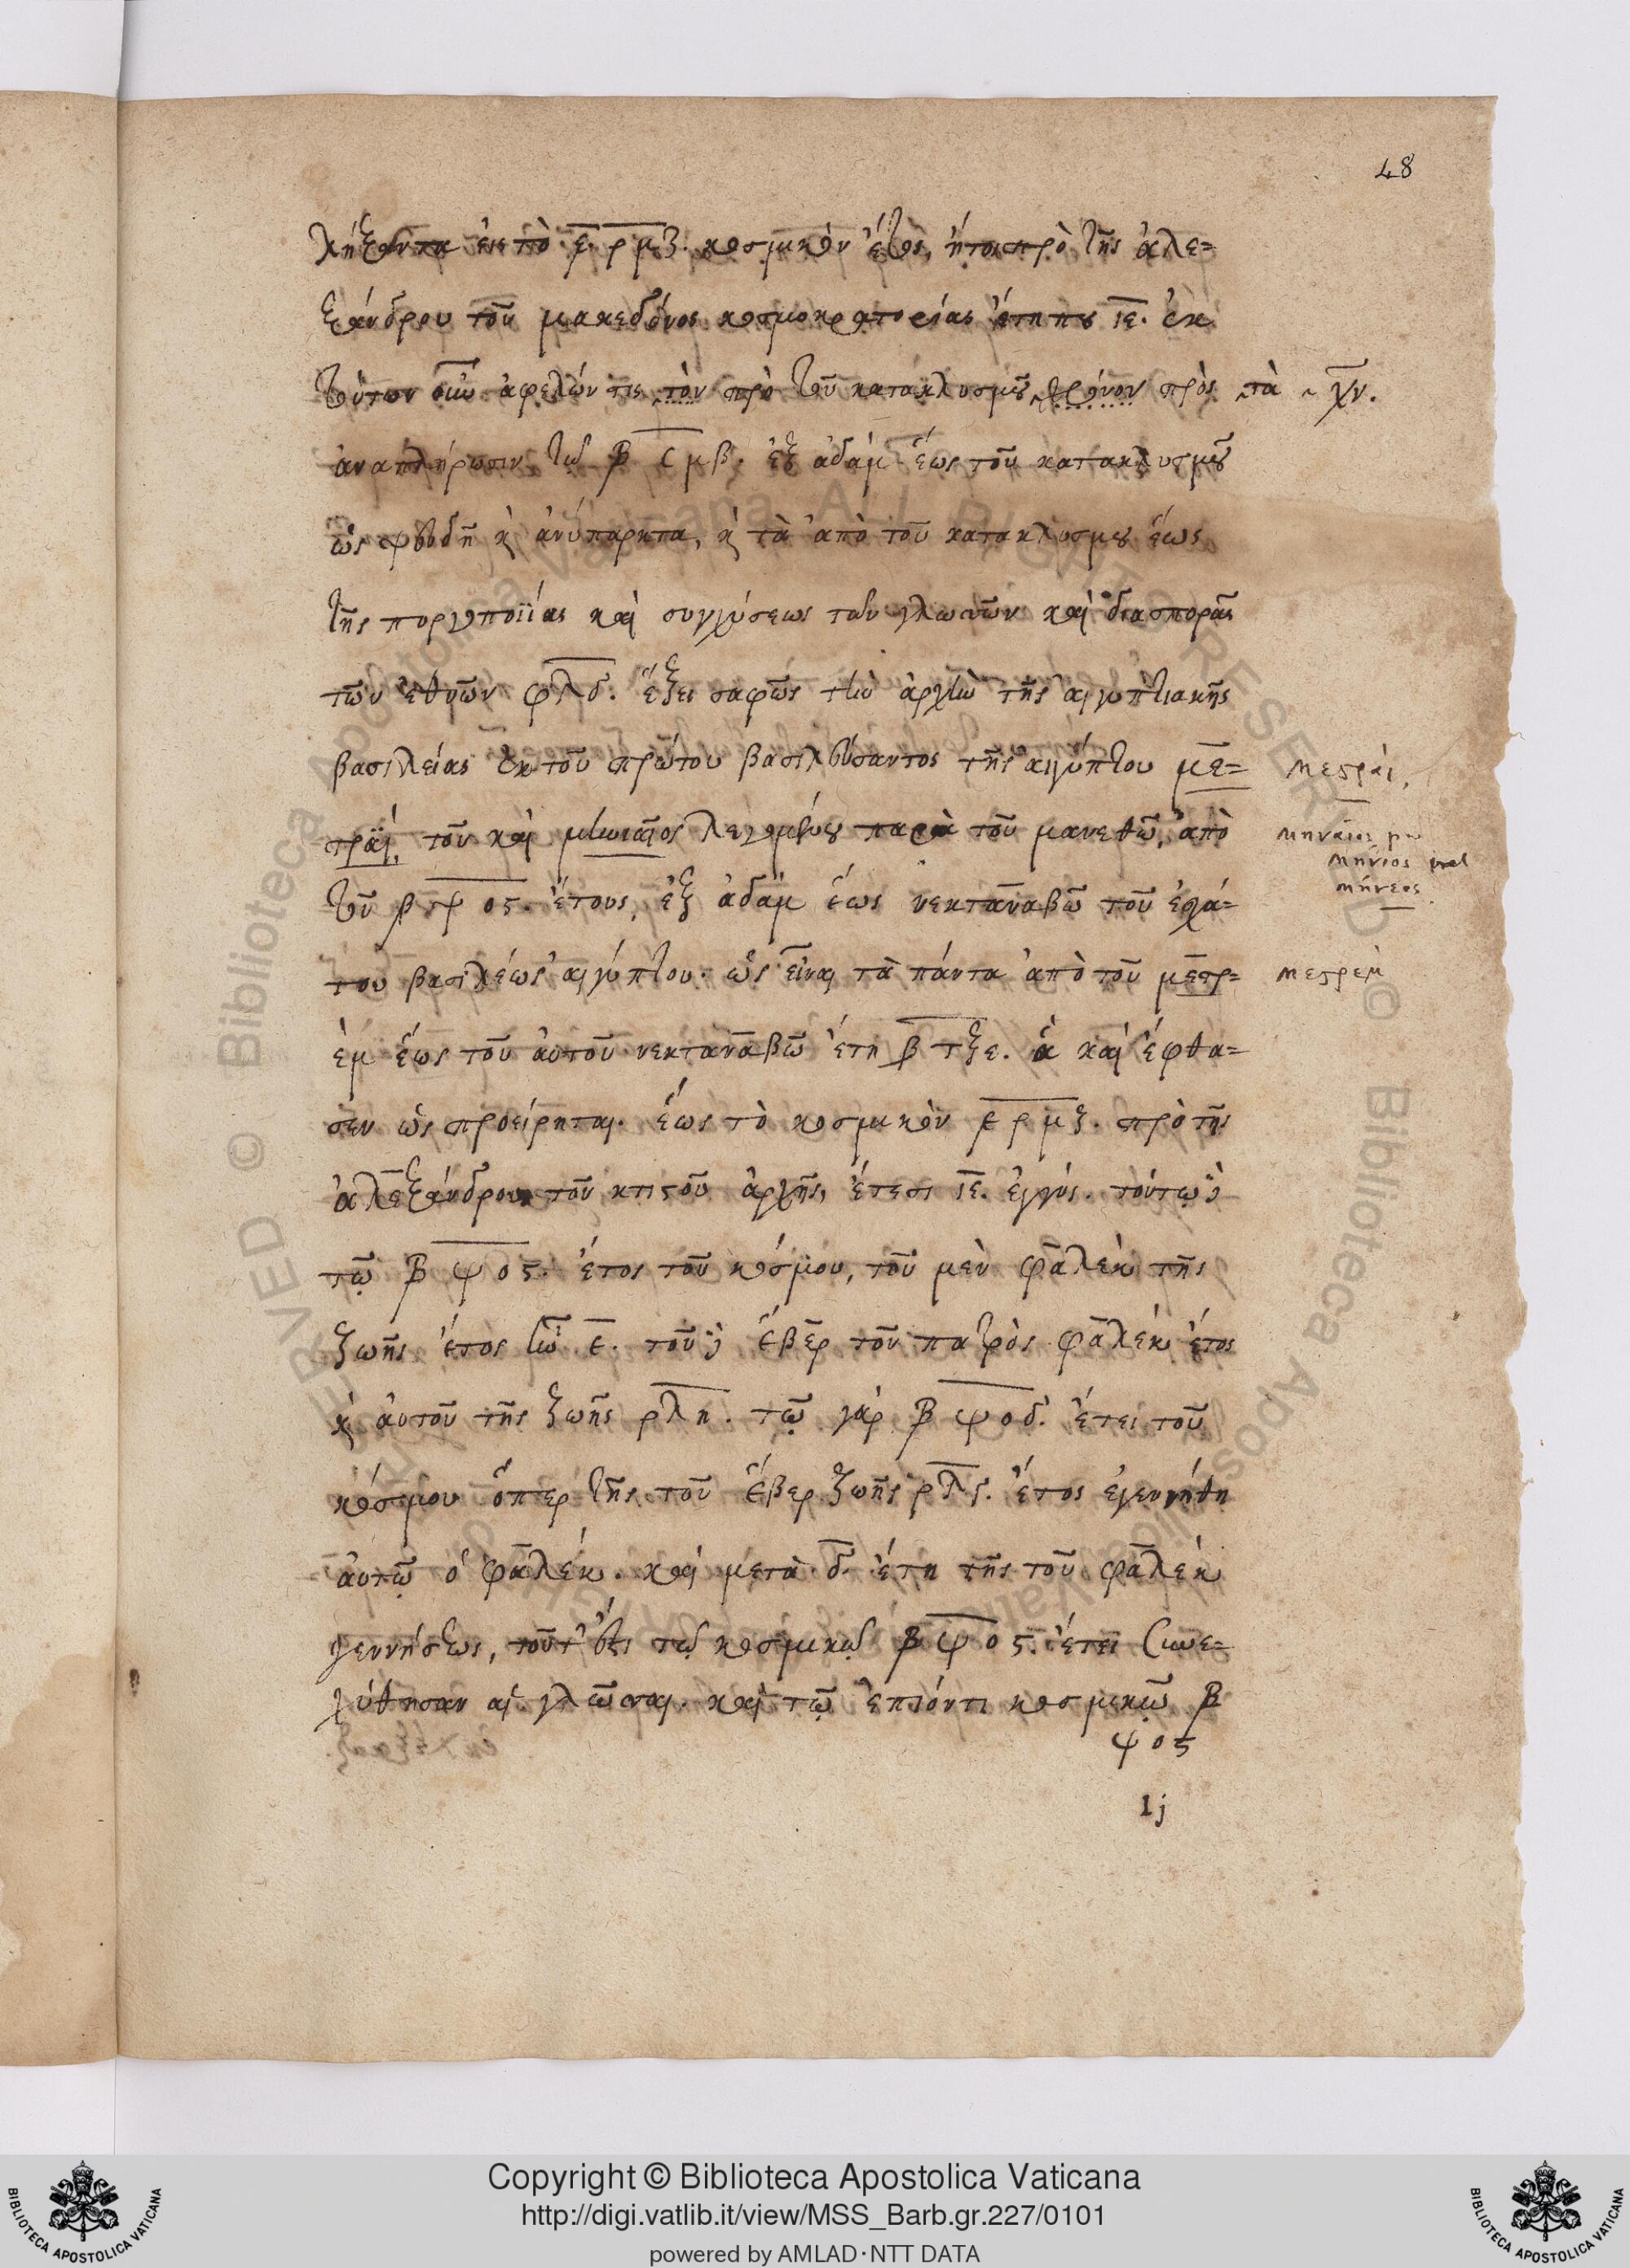 48
λήξαντα εἰς τὸ ε ρμζ. κοσμικὸν ἔτος, ἤτοι πρὸ τῆς ἀλε=
ξάνδρου τοῦ μακεδόνος κοσμοκρατορίας ἔτη που ιε. ἐκ
τούτων οὖν ἀφελών τις τὸν πρὸ τοῦ κατακλυσμοῦ χρόνον πρὸς τὰ χν.
ἀναπλήρωσιν τῶ β σμβ. ἐξ ἀδὰμ ἕως τοῦ κατακλυσμοῦ
ὡς ψευδῆ κ ἀνύπαρκτα, κ τὰ ἀπὸ τοῦ κατακλυσμου ἕως
τῆς πυργοποιΐας καὶ συγχύσεως τῶν γλωσσῶν καὶ διασπορᾶς
τῶν ἐθνῶν φλδ. ἕξει σαφῶς τὴν ἀρχὴν τῆς αἰγυπτιακῆς
βασιλείας ἐκ τοῦ πρώτου βασιλεύσαντος τῆς αἰγύπτου με=
μεσραὶ,
σραΐ, τοῦ καὶ μηναῖος λεγομένου παρὰ τοῦ μανεθῶ, ἀπὸ
μηναῖος
μήνιος vel
μήνεος
τοῦ βψος. ἔτους, ἐξ ἀδὰμ ἕως νεκταναβῶ τοῦ ἐσχά=
του βασιλέως αἰγύπτου. ὡς εἶναι τὰ πάντα ἀπὸ τοῦ μεσρ=
μεσρεὶμ
ὲμ ἕως τοῦ αὐτοῦ νεκταναβῶ ἔτη β τξε. ἃ καὶ ἔφθα=
σεν ὡς προείρηται. ἕως τὸ κοσμικὸν ε ρμζ. πρὸ τῆς
ἀλεξάνδρου τοῦ κτιστοῦ ἀρχῆς, ἔτεσι ιε. ἐγγύς. τούτω δὲ
τῷ β ψος. ἔτος τοῦ κόσμου, τοῦ μὲν φαλὲκ τῆς
ζωῆς ἔτος ἦν ε. τοῦ δὲ ἕβερ τοῦ πατρὸς φαλὲκ ἔτος
κ αὐτοῦ τῆς ζωῆς ρλη. τῷ γὰρ β ψοδ. ἔτει τοῦ
κόσμου ὅπερ τῆς τοῦ ἕβερ ζωῆς ρλς. ἔτος ἐγεννήθη
αὐτῷ ὁ φαλέκ. καὶ μετὰ δ. ἔτη τῆς τοῦ φαλὲκ
γεννήσεως, τοῦτ' ἔστι τῷ κοσμικῷ β ψος. ἔτει συνε=
χύθησαν αἱ γλῶσσαι. καὶ τῷ ἐπιόντι κοσμικῷ β
ψος
1j
© Biblioteca Apostolica Vaticana ALL RIGHTS RESERVED
Copyright © Biblioteca Apostolica Vaticana
http://digi.vatlib.it/view/MSS_Barb.gr.227/0101
powered by AMLAD·NTT DATA
BIBLIOTECA APOSTOLICA VATICANA
BIBLIOTECA APOSTOLICA VATICANA